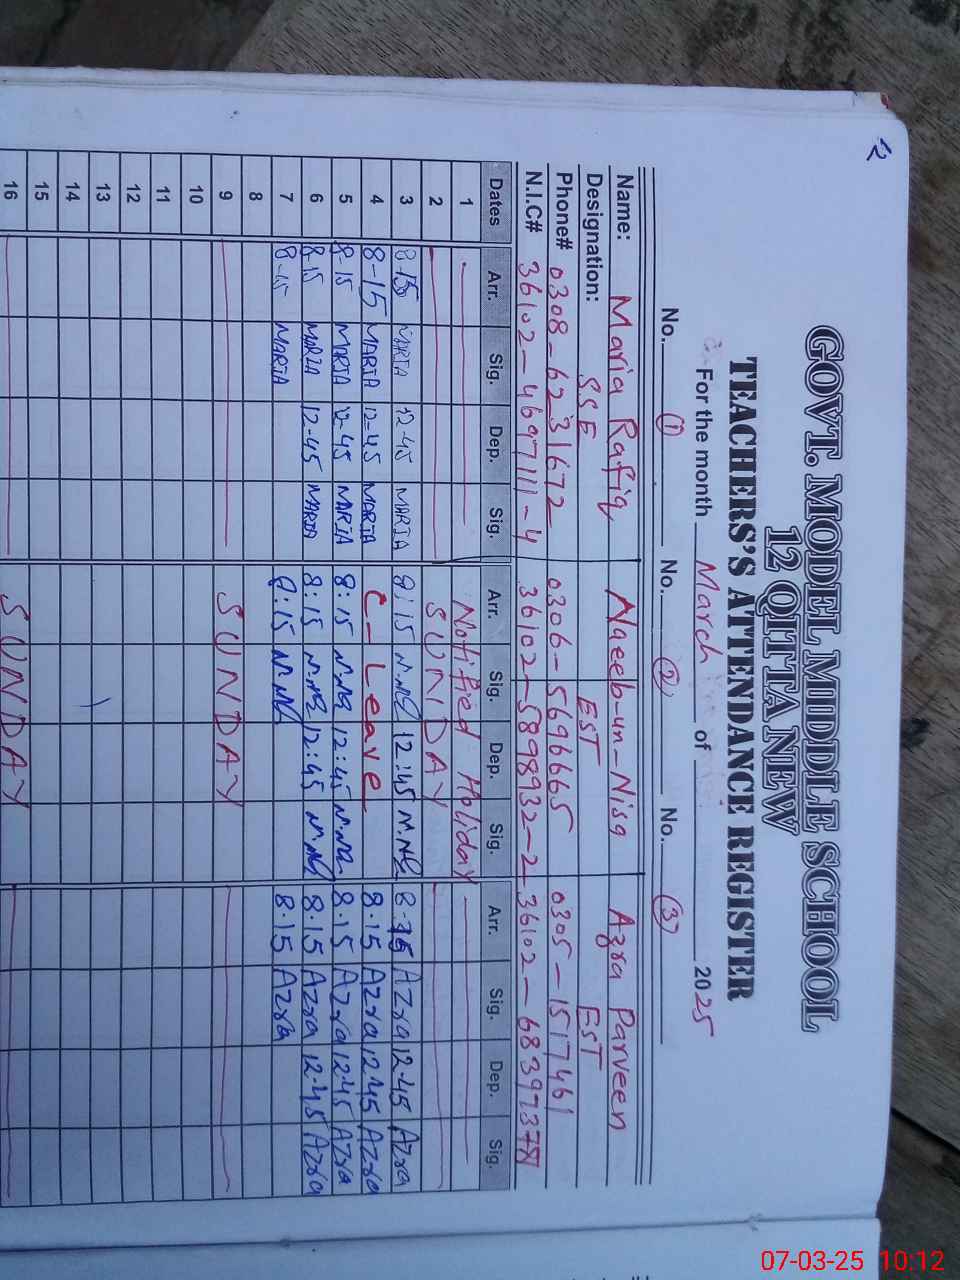 12
GOVT. MODEL MIDDLE SCHOOL
12 QITTA NEW
TEACHERS'S ATTENDANCE REGISTER
For the month March of 2025
No. (1) No. (2) No. (3)
Name: Maria Rafiq Naeeb-un-Nisa Azra Parveen
Designation: SSE EST EST
Phone# 0308-6231672 0306-5696665 0305-1517461
N.I.C# 36102-4697111-4 36102-5898932-2 36102-
Dates Arr. Sig. Dep. Sig. Arr. Sig. Dep. Sig. Arr. Sig. Dep. Sig.
1 Notified Holiday
2 SUNDAY
3 8-15 MARIA 12-45 MARIA 8:15 12:45 8-15 Azra 12-45 Azra
4 8-15 MARIA 12-45 MARIA C-Leave 8.15 Azra 12.45 Azra
5 8-15 MARIA 12-45 MARIA 8:15 12:45 8.15 Azra 12.45 Azra
6 8-15 MARIA 12-45 MARIA 8:15 12:45 8.15 Azra 12.45 Azra
7 8-15 MARIA 8:15 8.15 Azra
8
9 SUNDAY
10
11
12
13
14
15
16 SUNDAY
07-03-25 10:12